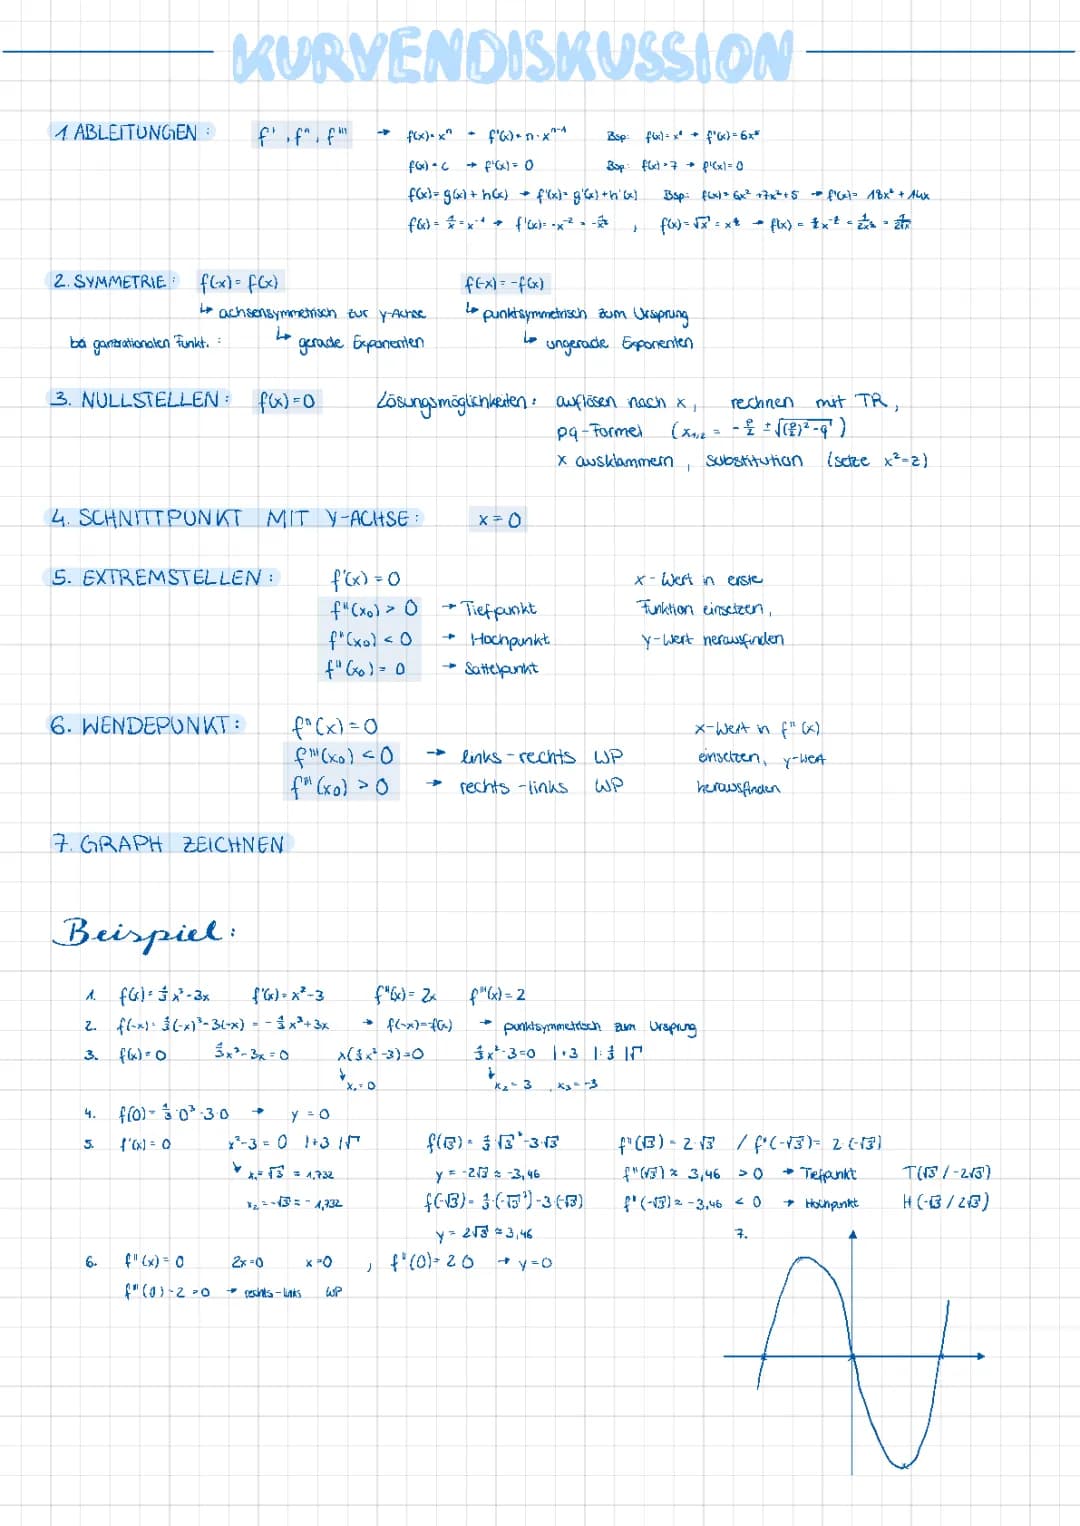 KURVENDISKUSSION
1 ABLEITUNGEN : f', f'', f''' → f(x)=x^n → f'(x)=n·x^(n-1) Bsp: f(x)=x⁶ → f'(x)=6x⁵
f(x)=c → f'(x)=0 Bsp: f(x)=7 → f'(x)=0
f(x)=g(x)+h(x) → f'(x)=g'(x)+h'(x) Bsp: f(x)=6x³+7x²+5 → f'(x)=18x²+14x
f(x)=1/x=x⁻¹ → f'(x)=-x⁻²=-1/x² , f(x)=√x=x^½ → f(x)=½x^-½=1/2x^½=1/2√x
2. SYMMETRIE : f(-x)=f(x) f(-x)=-f(x)
↳ achsensymmetrisch zur y-Achse ↳ punktsymmetrisch zum Ursprung
bei ganzrationalen Funkt. : ↳ gerade Exponenten ↳ ungerade Exponenten
3. NULLSTELLEN : f(x)=0 Lösungsmöglichkeiten : auflösen nach x, rechnen mit TR,
pq-Formel (x₁,₂ = -p/2 ± √((p/2)²-q) )
x ausklammern , Substitution (setze x²=z)
4. SCHNITTPUNKT MIT Y-ACHSE : x=0
5. EXTREMSTELLEN : f'(x)=0 x-Wert in erste
f''(x₀) > 0 → Tiefpunkt Funktion einsetzen,
f''(x₀) < 0 → Hochpunkt y-Wert herausfinden
f''(x₀) = 0 → Sattelpunkt
6. WENDEPUNKT : f''(x)=0 x-Wert in f''(x)
f'''(x₀) < 0 → links-rechts WP einsetzen, y-Wert
f'''(x₀) > 0 → rechts-links WP herausfinden
7. GRAPH ZEICHNEN
Beispiel :
1. f(x)=⅓x³-3x f'(x)=x²-3 f''(x)=2x f'''(x)=2
2. f(-x)=⅓(-x)³-3(-x) = -⅓x³+3x → f(-x)=-f(x) → punktsymmetrisch zum Ursprung
3. f(x)=0 ⅓x³-3x=0 x(⅓x²-3)=0 ⅓x²-3=0 |+3 |:⅓ |√
↓ x₁=0 ↓ x₂=3 , x₃=-3
4. f(0)=⅓·0³-3·0 → y=0
5. f'(x)=0 x²-3=0 |+3 |√ f(√3)=⅓·√3³-3·√3 f''(√3)=2·√3 / f''(-√3)=2·(-√3)
↘ x₁=√3≈1,732 y=-2√3≈-3,46 f''(√3)≈3,46 >0 → Tiefpunkt T(√3/-2√3)
x₂=-√3≈-1,732 f(-√3)=⅓·(-√3³)-3·(-√3) f''(-√3)≈-3,46 <0 → Hochpunkt H(-√3/2√3)
y=2√3≈3,46 7.
6. f''(x)=0 2x=0 x=0 , f''(0)=2·0 → y=0
f'''(0)=2 >0 → rechts-links WP